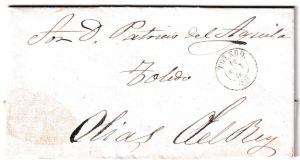 Sor D. Patricio del Aguila
Toledo
TOLEDO
Olias del Rey